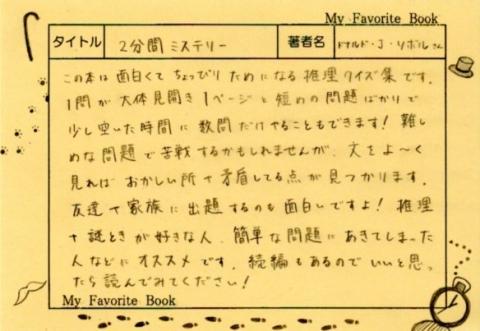 My Favorite Book
タイトル 2分間ミステリー 著者名 ドナルド・J・ソボルさん
この本は面白くてちょっぴりためになる推理クイズ集です。
1問が大体見開き1ページと短めの問題ばかりで
少し空いた時間に数問だけやることもできます!難し
めな問題で苦戦するかもしれませんが、文をよ〜く
見ればおかしい所や矛盾してる点が見つかります。
友達や家族に出題するのも面白いですよ!推理
や謎ときが好きな人、簡単な問題にあきてしまった
人などにオススメです。続編もあるのでいいと思っ
たら読んでみてください!
My Favorite Book